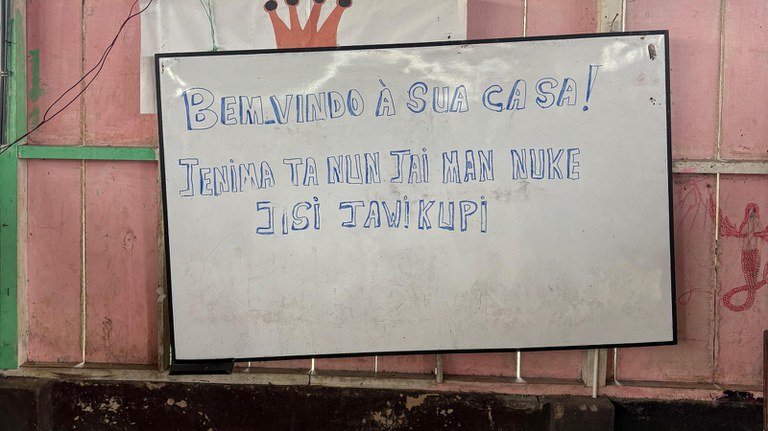 BEM-VINDO À SUA CASA!
JENIMA TA NUN JAI MAN NUKE
JISI JAWIKUPI